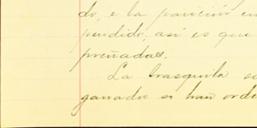 do, e la parición en
pendido, así es que
preñadas.
La Grasquita se
ganado si han orde